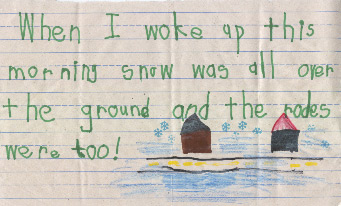 When I woke up this
morning snow was all over
the ground and the rodes
were too!